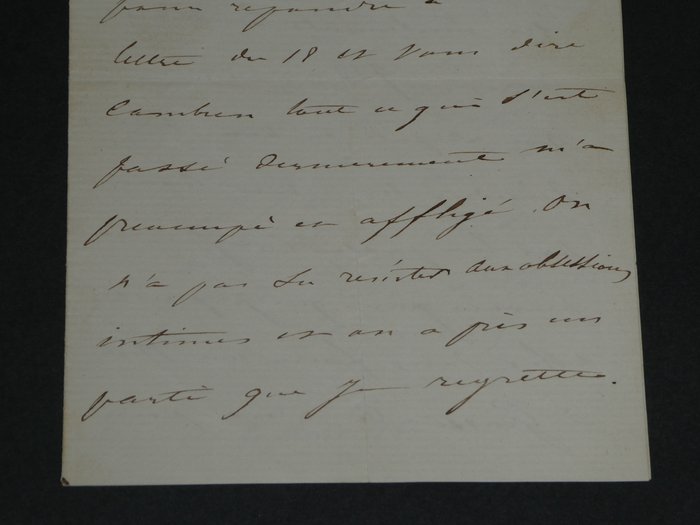 pour repondre à
lettre du 18 et vous dire
combien tout ce qui s'est
passé dernierement m'a
preoccupé et affligé. On
n'a pas su resister aux obsessions
intimes et on a pris un
parti que je regrette.